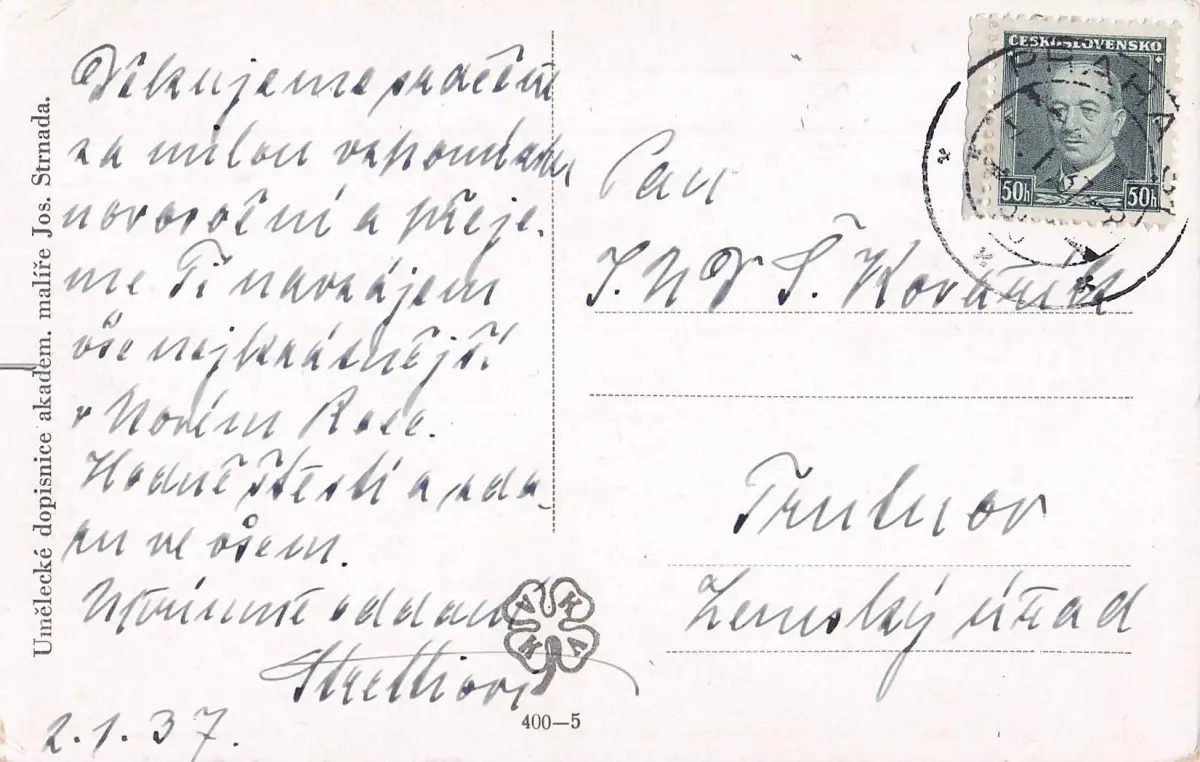 Umělecké dopisnice akadem. malíře Jos. Strnada.
Děkujeme srdečně
za milou vzpomínku
novoroční a přeje-
me Ti navzájem
vše nejkrásnější
v Novém Roce.
Hodně štěstí a zda-
ru ve všem.
Upřímně oddaní
Strettiovi
2.1.37.
400—5
ČESKOSLOVENSKO
50h 50h
PRAHA
Pan
J.U.D Š. Kovářík
Trutnov
Zemský úřad